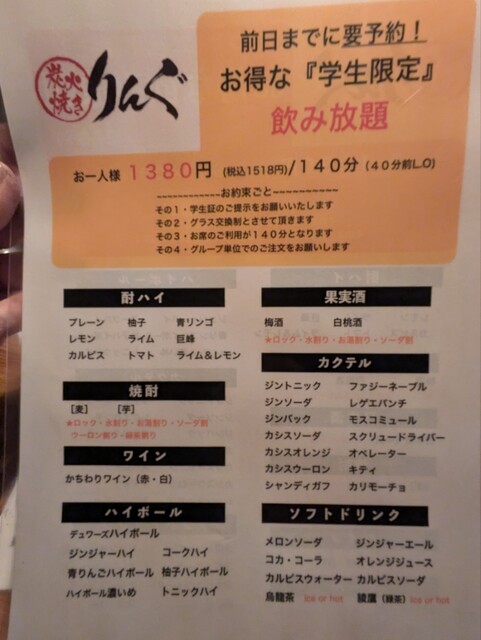 炭火
焼き
りんぐ
前日までに要予約！
お得な『学生限定』
飲み放題
お一人様 1380円 (税込1518円)/140分(40分前L.O)
~~~~~~~~~~お約束ごと~~~~~~~~~~
その1・学生証のご提示をお願いいたします
その2・グラス交換制とさせて頂きます
その3・お席のご利用が140分となります
その4・グループ単位でのご注文をお願いします
酎ハイ
プレーン 柚子 青リンゴ
レモン ライム 巨峰
カルピス トマト ライム＆レモン
焼酎
［麦］ ［芋］
★ロック・水割り・お湯割り・ソーダ割
ウーロン割り・緑茶割り
ワイン
かちわりワイン（赤・白）
ハイボール
デュワーズハイボール
ジンジャーハイ コークハイ
青りんごハイボール 柚子ハイボール
ハイボール濃いめ トニックハイ
果実酒
梅酒 白桃酒
★ロック・水割り・お湯割り・ソーダ割
カクテル
ジントニック ファジーネーブル
ジンソーダ レゲエパンチ
ジンバック モスコミュール
カシスソーダ スクリュードライバー
カシスオレンジ オペレーター
カシスウーロン キティ
シャンディガフ カリモーチョ
ソフトドリンク
メロンソーダ ジンジャーエール
コカ・コーラ オレンジジュース
カルピスウォーター カルピスソーダ
烏龍茶 ice or hot 綾鷹（緑茶）ice or hot